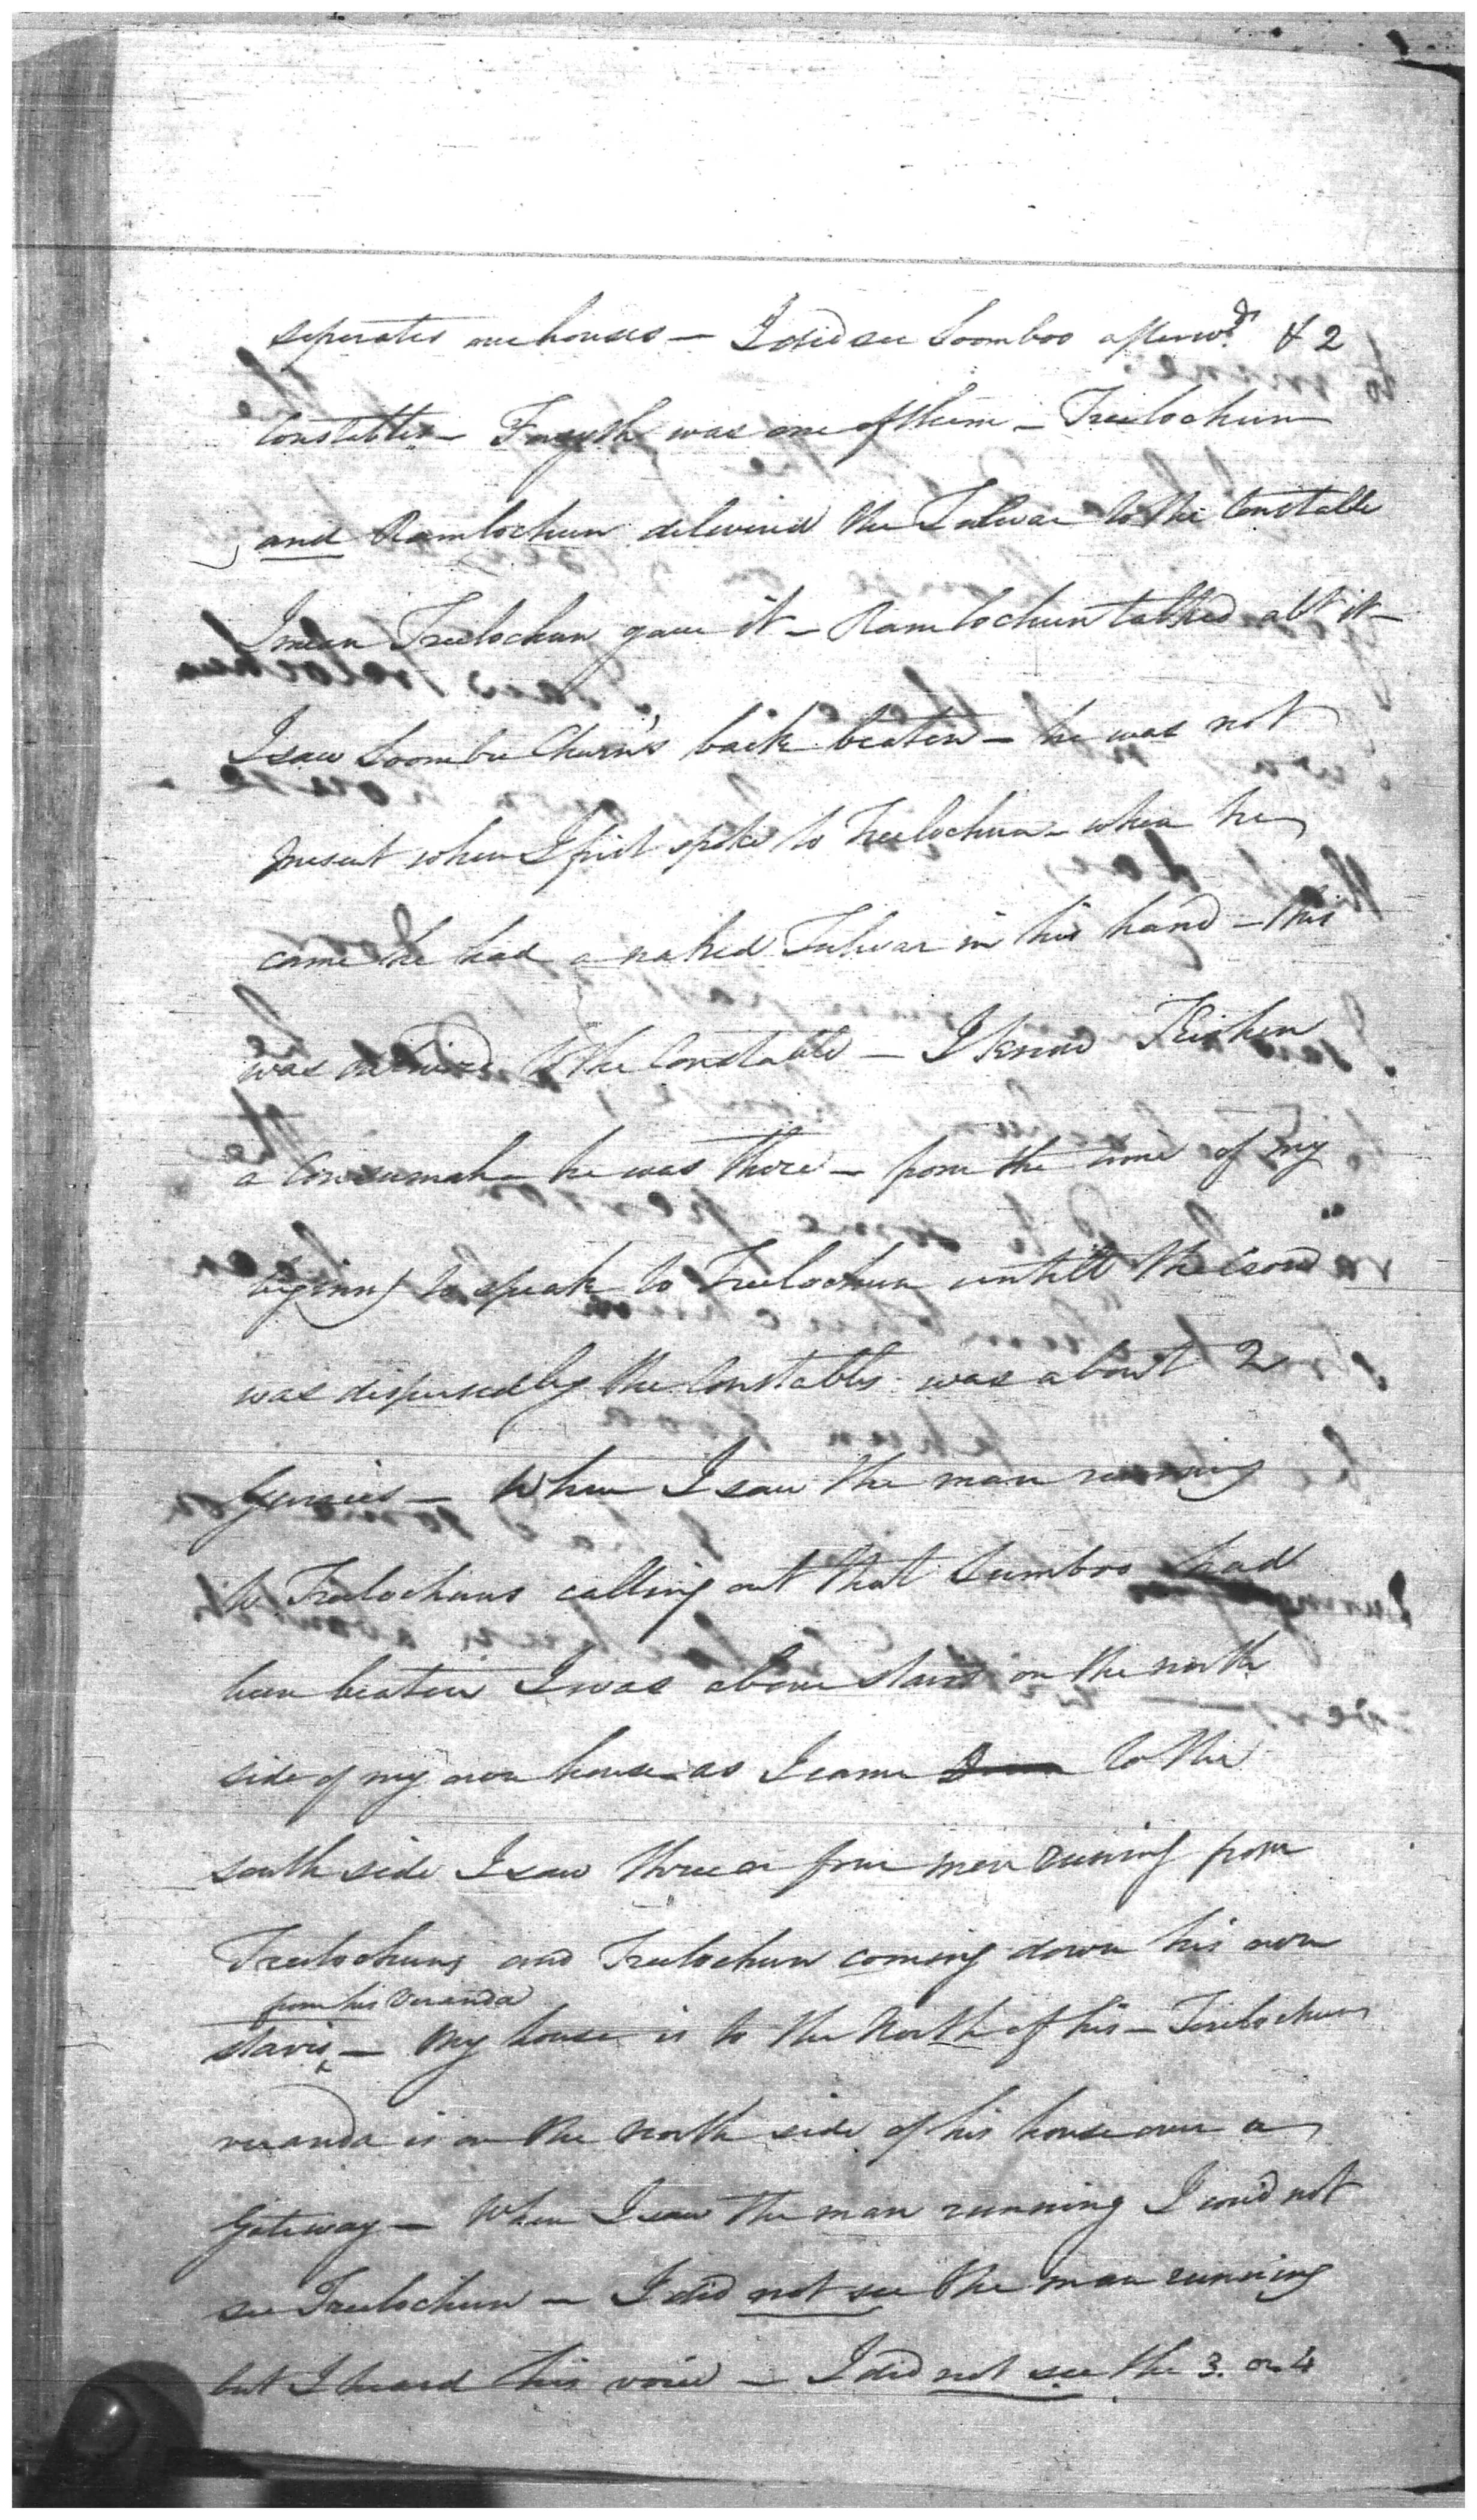 seperates our houses — I did see Soomboo afterwds & 2
Constables — Forsyth was one of them — Treelochun
and Ramlochun delivered the Tulwar to the Constable
I mean Treelochun gave it — Ramlochun talked abt it —
I saw Soombu Churn's back beaten — he was not
present when I first spoke to Treelochun — when he
came he had a naked Tulwar in his hand — this
was delivered to the Constable — I know Kishen
a Consumah he was there — from the time of my
beginng to speak to Treelochun untill the Croud
was dispersed by the Constables was about 2
Gurries — When I saw the man running
to Treelochuns calling out that Sumboo had
been beaten I was above stairs on the north
side of my own house as I came to the
south side I saw three or four men runing from
Treelochuns and Treelochun coming down his own
from his Veranda
stairs — My house is to the North of his — Treelochuns
veranda is on the North side of his house over a
Gateway — When I saw the man running I could not
see Treelochun — I did not see the man running
but I heard his voice — I did not see the 3. or 4